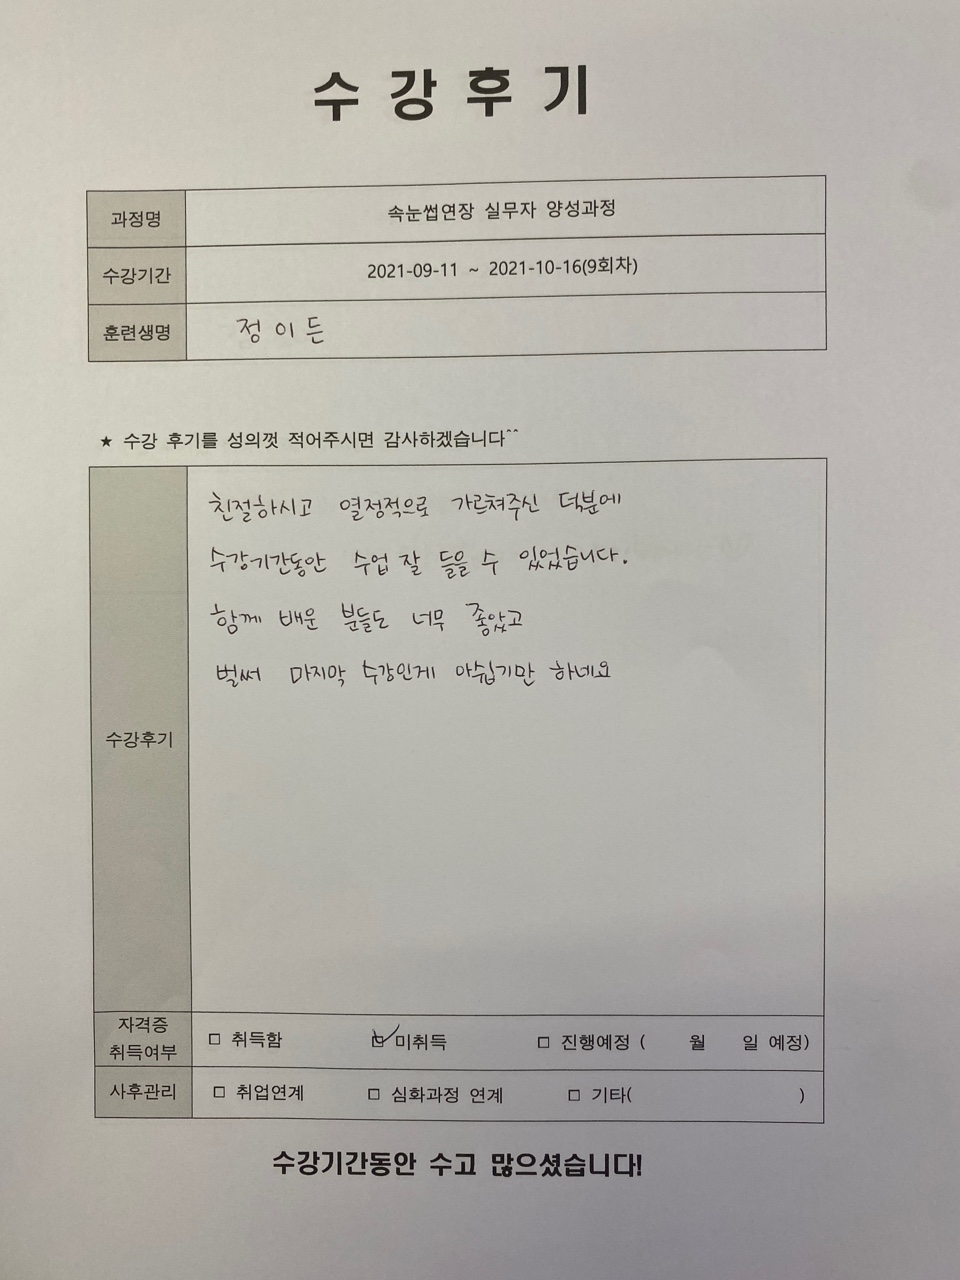 수강후기
과정명 속눈썹연장 실무자 양성과정
수강기간 2021-09-11 ~ 2021-10-16(9회차)
훈련생명 정이든
★ 수강 후기를 성의껏 적어주시면 감사하겠습니다^^
친절하시고 열정적으로 가르쳐주신 덕분에
수강기간동안 수업 잘 들을 수 있었습니다.
함께 배운 분들도 너무 좋았고
벌써 마지막 수강인게 아쉽기만 하네요
수강후기
자격증
취득여부 □ 취득함 ☑ 미취득 □ 진행예정 ( 월 일 예정)
사후관리 □ 취업연계 □ 심화과정 연계 □ 기타( )
수강기간동안 수고 많으셨습니다!